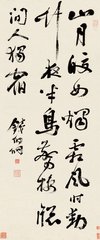 山月皎如燭霜風時動
竹夜半鳥驚棲窗
間人獨宿
錢伯坰